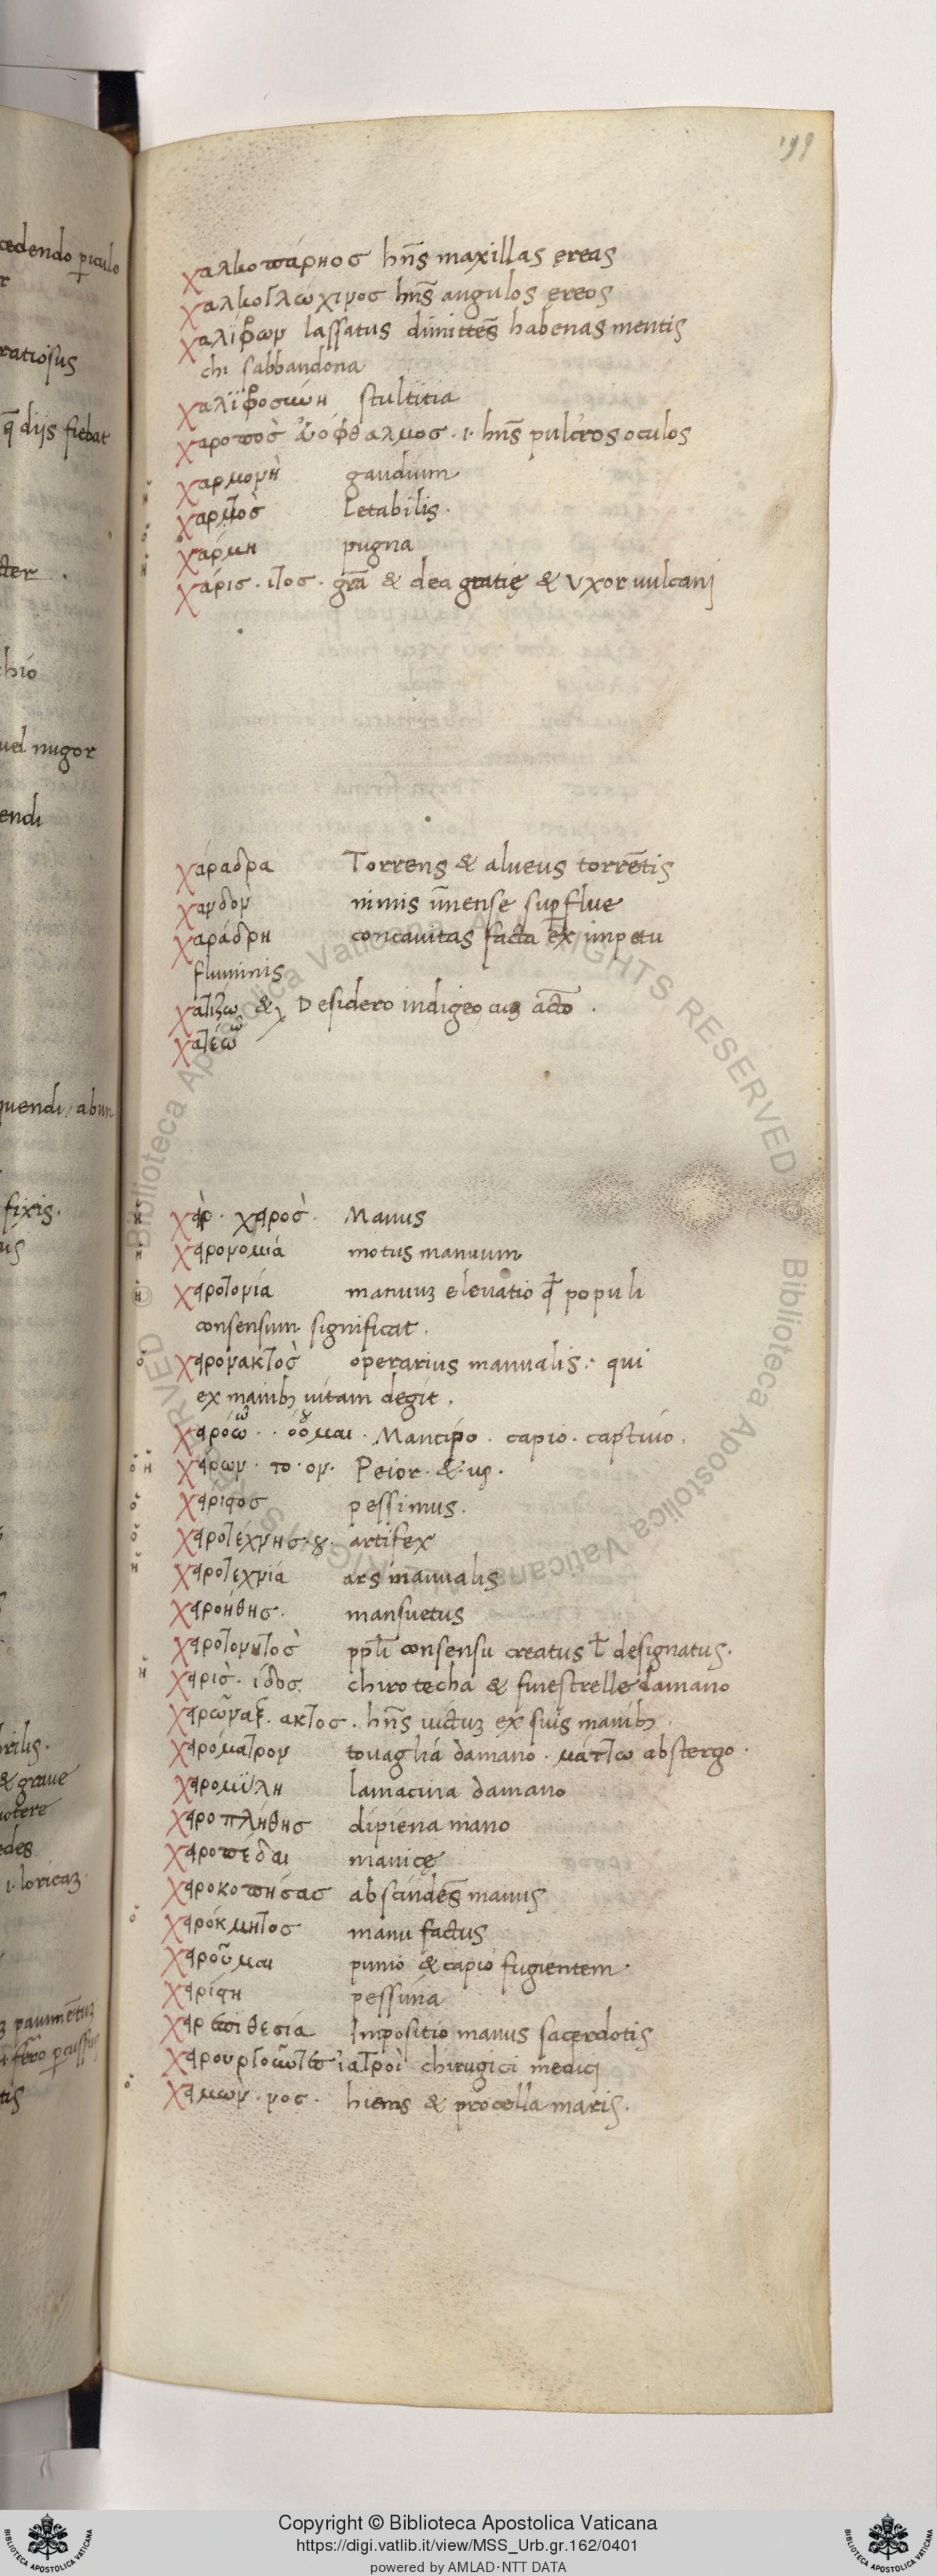 199
χαλκοπάρηος hn̄s maxillas ęreas
χαλκογλώχινος hn̄s angulos ęreos
χαλίφρων lassatus dimittēs habenas mentis
chi sabbandona
χαλϊφροσύνη stultitia
χαροπὸς ὀφθαλμος .i. hn̄s pulcros oculos
χαρμονὴ gaudium
χαρτὸς Letabilis.
χάρμη pugna
χάρις . ιτος . gr̄a & dea gratię & Vxor uulcanj
χάραδρα Torrens & alueus torrētis
χανδον nimis īmense supflue
χαράδρη concauitas facta ex impetu
fluminis
χατίζω & Desidero indigeo cuȝ acctō .
χατέω ῶ
χεὶρ . χειρος . Manus
χειρονομία motus manuum
χειροτονία manuuȝ eleuatio populi
consensum significat .
χειρονακτος operarius manualis . qui
ex manibꝫ uitam degit .
χειρόω . ῶ . όομαι . Mancipo . capio . captiuo .
χείρων . το . ον . Peior . & . us .
χειριστος pessimus .
χειροτέχνης . ου . artifex
χειροτεχνία ars manualis
χειροήθης . mansuetus
χειροτονητὸς ppłi consensu creatus ł designatus .
χειρὶς . ίδος . chirotecha & finestrelle damano
χειρῶναξ . ακτος . hn̄s uictuȝ ex suis manibꝫ .
χειρόματρον touaglia damano . μάττω abstergo .
χειρομϋλη lamacina damano
χειροπλήθης dipiena mano
χειροπέδαι manicę
χειροκοπήσας abscindēs manus
χειρόκμητος manu factus
χειροῦμαι punio & capio fugientem .
χειρίστη pessima
χειρεπιθεσία Impositio manus sacerdotis
χειρουργοῦντες ἰατροὶ chirugici medicj
χειμὼν . νος . hiems & procella maris .
Copyright © Biblioteca Apostolica Vaticana
https://digi.vatlib.it/view/MSS_Urb.gr.162/0401
powered by AMLAD·NTT DATA